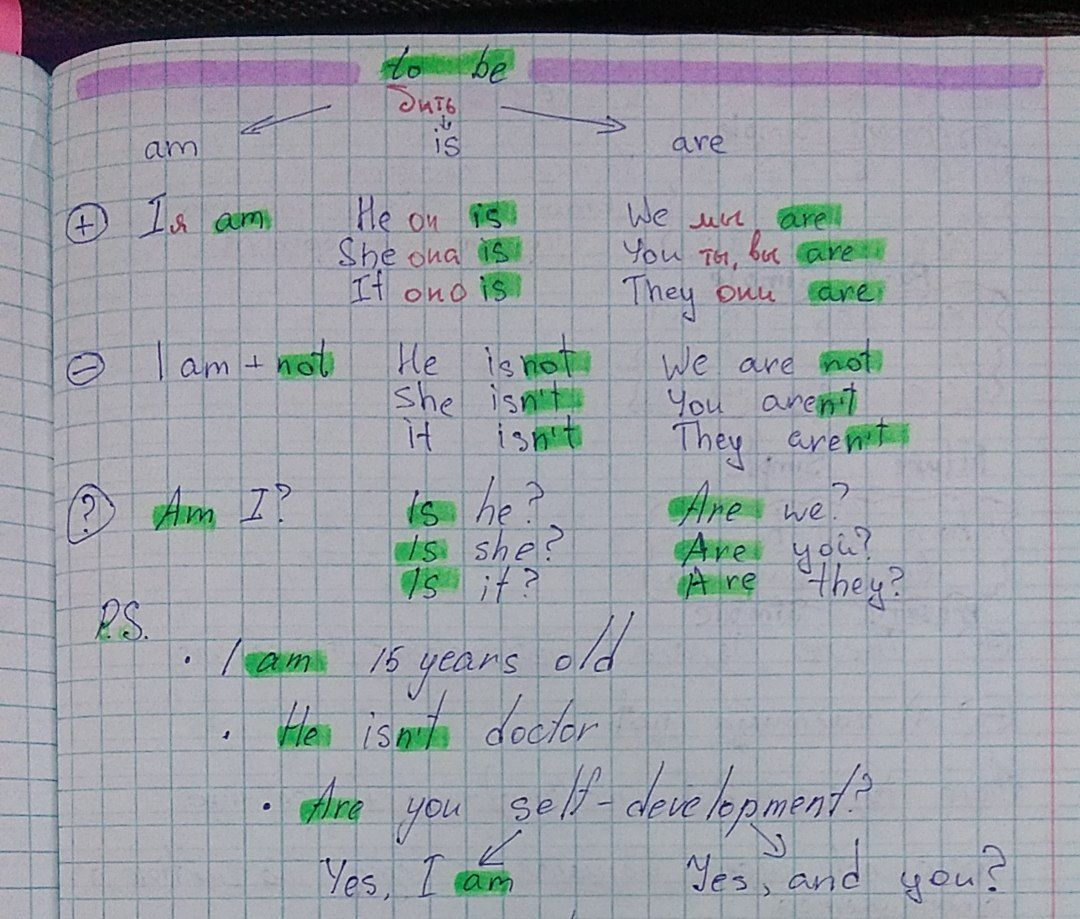 to be
бить
am is are
+ I я am He он is We мы are
She она is You ты, вы are
It оно is They они are
- I am + not He is not We are not
She isn't You aren't
it isn't They aren't
? Am I? Is he? Are we?
Is she? Are you?
Is it? Are they?
P.S.
· I am 15 years old
· He isn't doctor
· Are you self-development?
Yes, I am Yes, and you?